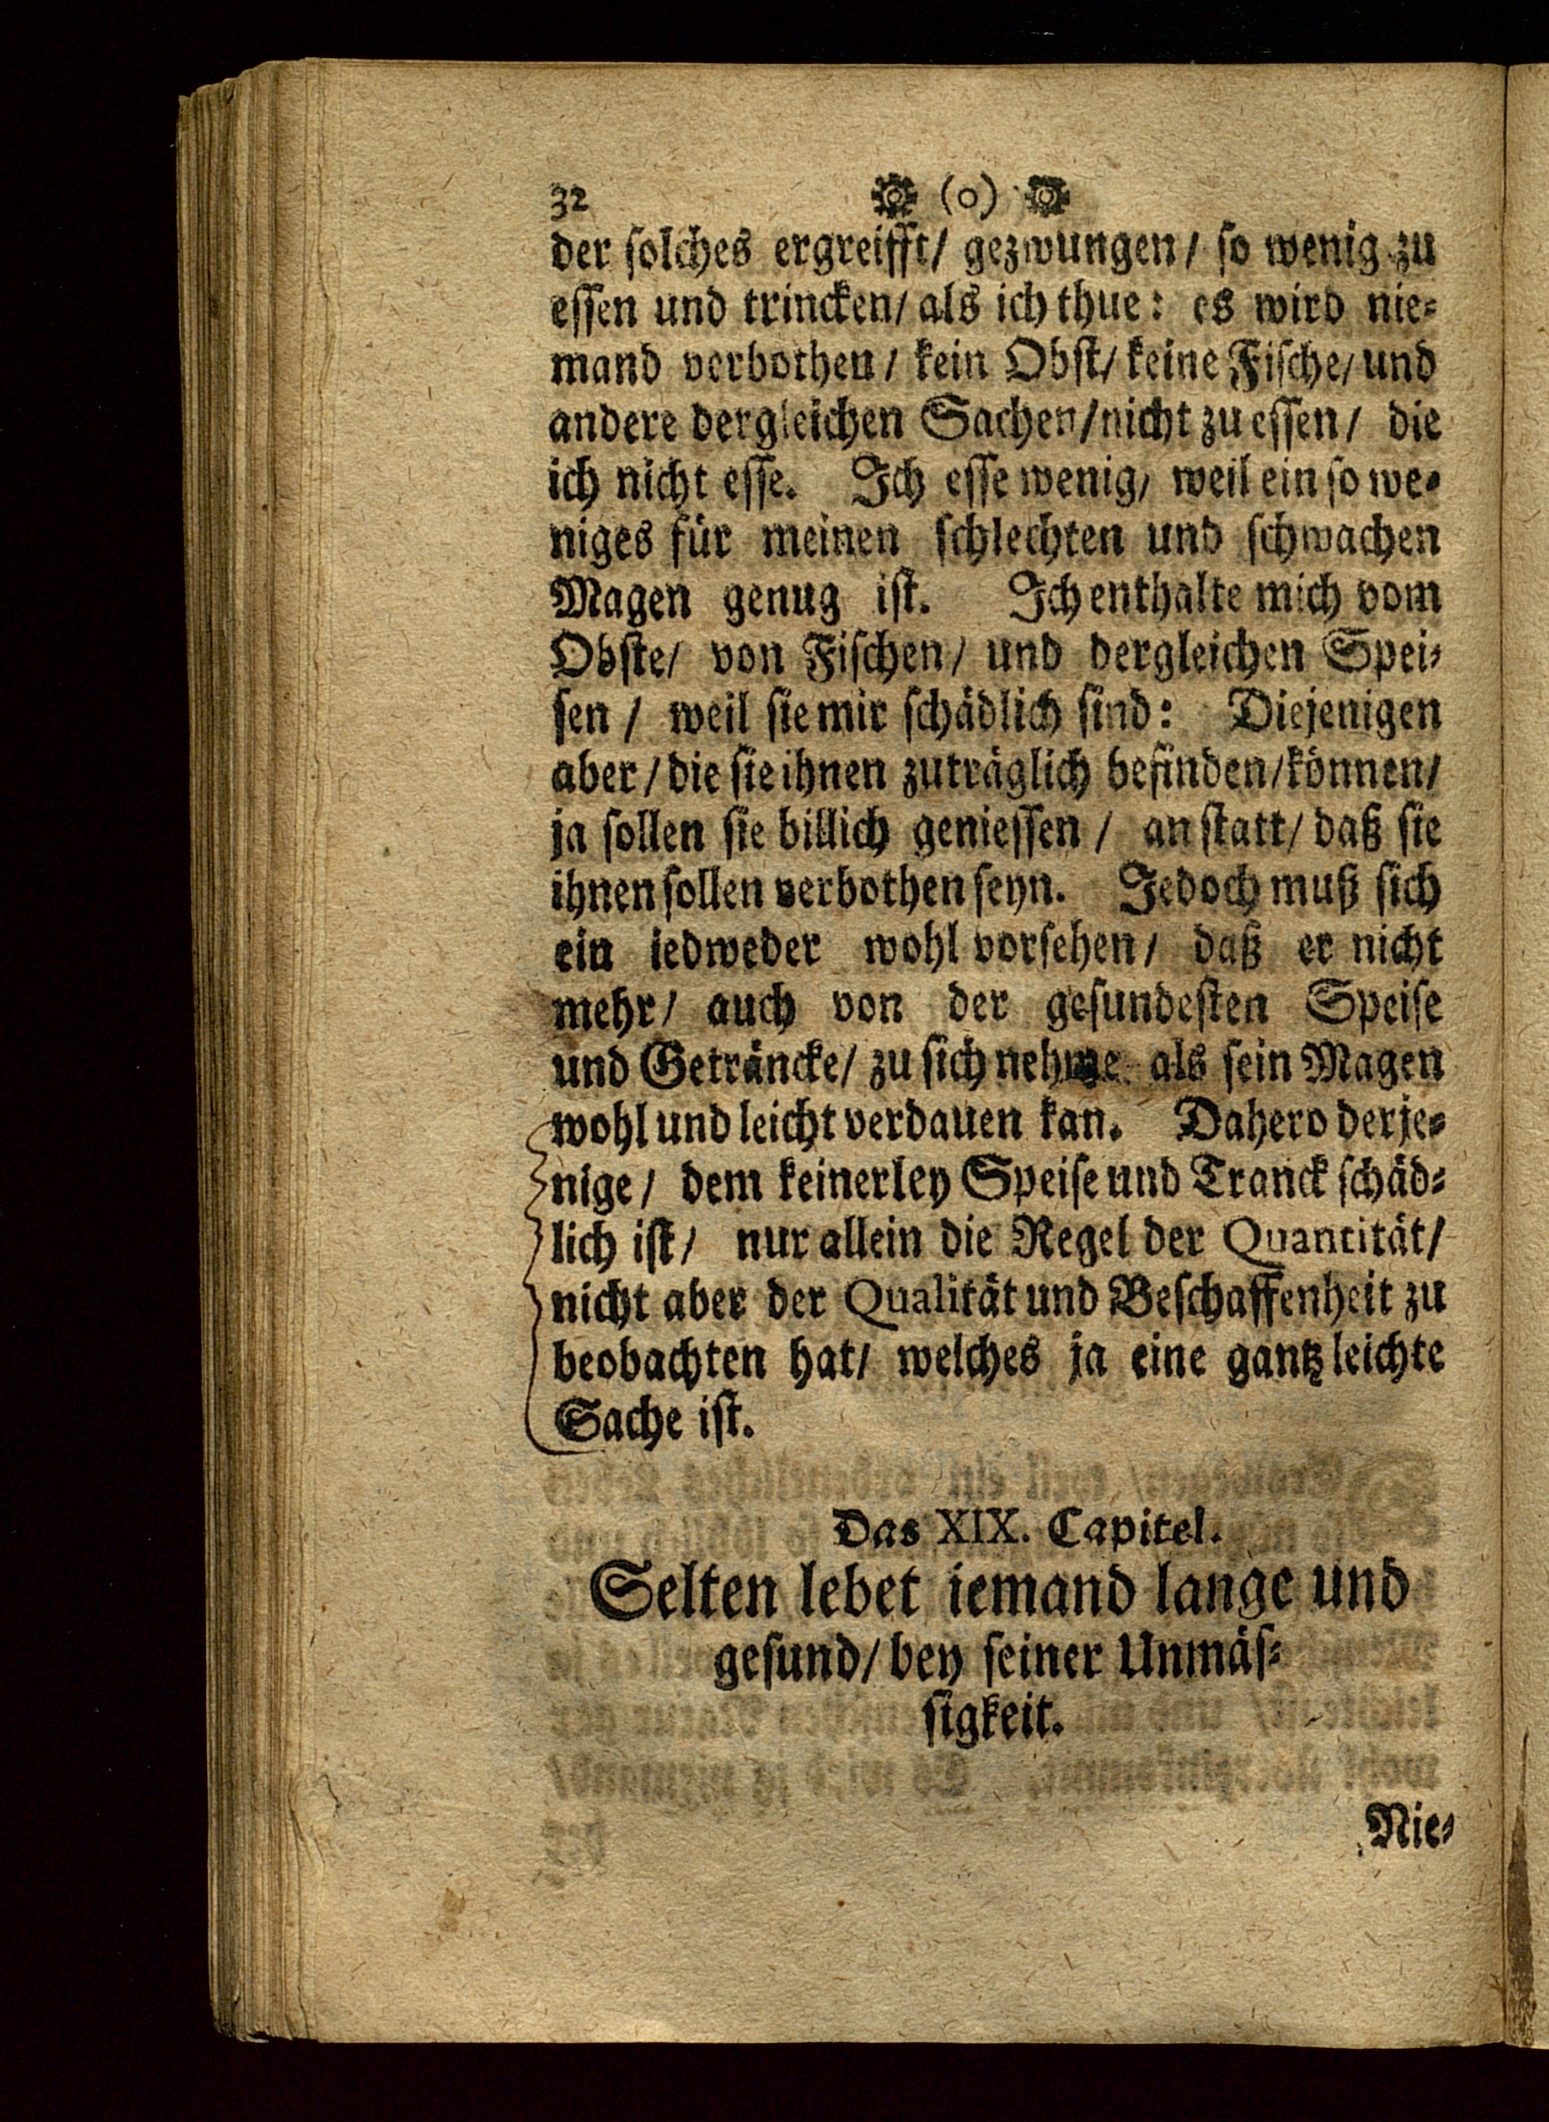 32 (o)
der solches ergreifft/ gezwungen/ so wenig zu
essen und trincken/ als ich thue: es wird nie-
mand verbothen/ kein Obst/ keine Fische/ und
andere dergleichen Sachen/nicht zu essen/ die
ich nicht esse. Ich esse wenig/ weil ein so we-
niges für meinen schlechten und schwachen
Magen genug ist. Ich enthalte mich vom
Obste/ von Fischen/ und dergleichen Spei-
sen / weil sie mir schädlich sind: Diejenigen
aber/ die sie ihnen zuträglich befinden/können/
ja sollen sie billich geniessen / an statt/ daß sie
ihnen sollen verbothen seyn. Jedoch muß sich
ein iedweder wohl vorsehen/ daß er nicht
mehr/ auch von der gesundesten Speise
und Geträncke/ zu sich nehme als sein Magen
wohl und leicht verdauen kan. Dahero derje-
nige/ dem keinerley Speise und Tranck schäd-
lich ist/ nur allein die Regel der Quantität/
nicht aber der Qualität und Beschaffenheit zu
beobachten hat/ welches ja eine gantz leichte
Sache ist.
Das XIX. Capitel.
Selten lebet iemand lange und
gesund/ bey seiner Unmäs-
sigkeit.
Nie-